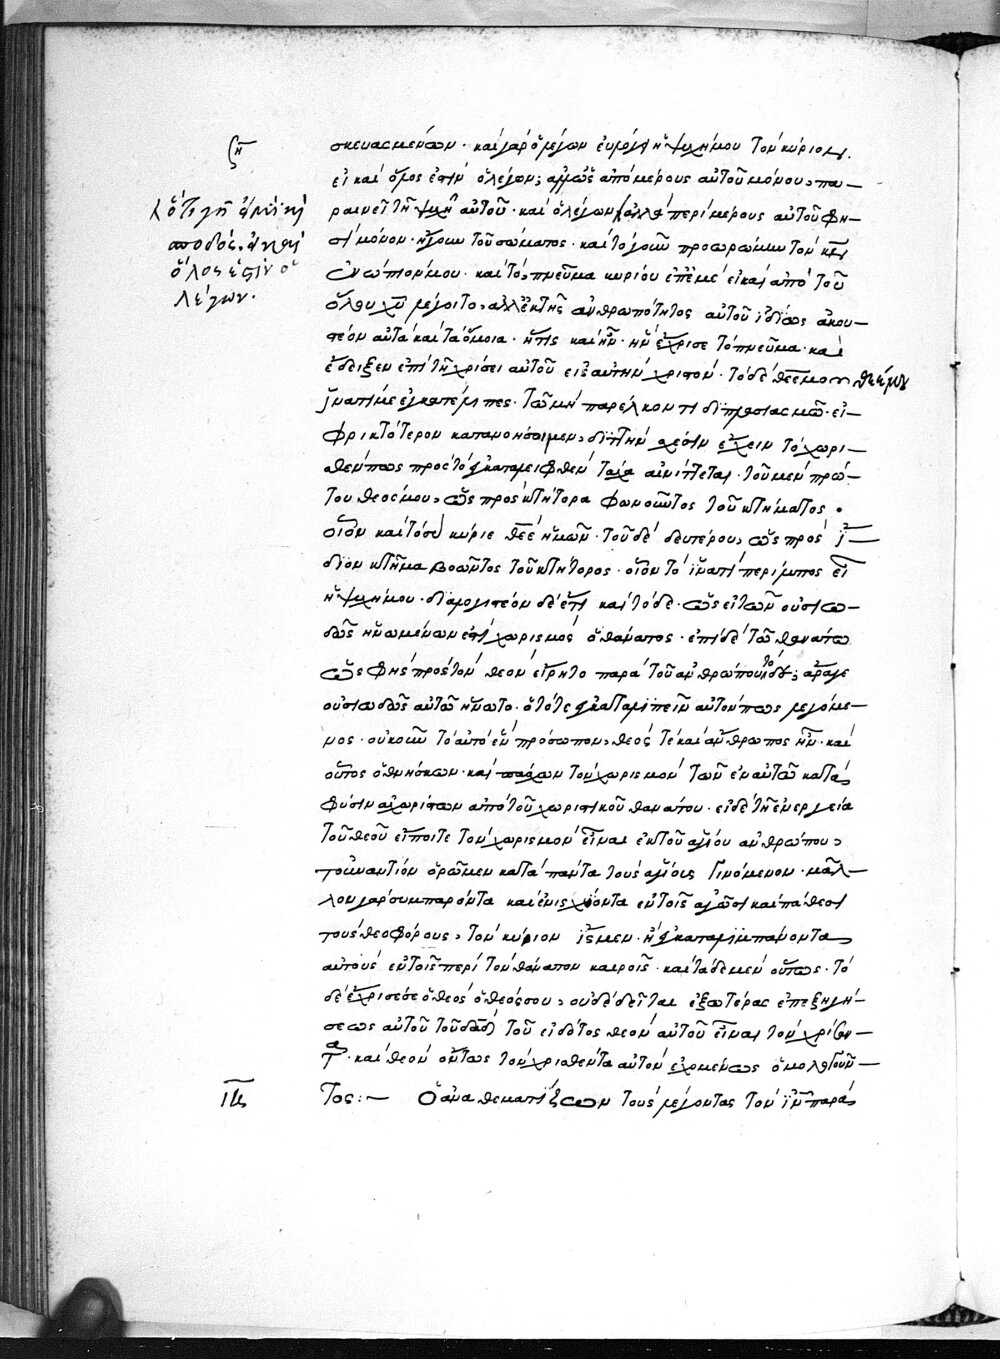 ση
ὅτι γῆ
ὅλος ἐστὶν ὁ
λέγων.
σκευασμένων· καὶ γὰρ ὁ λέγων εὐλόγει ἡ ψυχή μου τὸν κύριον,
εἰ καὶ ὅλος ἐστὶν ὁ λέγων; ἀλλ' ὡς ἀπὸ μέρους αὐτοῦ μόνου, πα–
ραινεῖ τῇ ψυχῇ αὐτοῦ· καὶ ὁ λέγων ἀλλὰ περὶ μέρους αὐτοῦ φη–
σὶ μόνον· ἤγουν τοῦ σώματος· καὶ τὸ γοῦν προωρώμην τὸν κν
ἐνώπιόν μου· καὶ τὸ, πνεῦμα κυρίου ἐπ' ἐμέ· εἰ καὶ ἀπὸ τοῦ
ὅλου χυ λέγοιτο, ἀλλ' ἐκ τῆς ἀνθρωπότητος αὐτοῦ ἰδίως ἀκου–
στέον αὐτὰ καὶ τὰ ὅμοια· ἥτις καὶ ἦν· ἣν ἔχρισε τὸ πνεῦμα· καὶ
ἔδειξεν ἐπὶ τῇ χρίσει αὐτοῦ εἰς αὐτὴν χριστόν· τὸ δὲ θεέ μου θεέ μου
ἱνατί με ἐγκατέλιπες· τῶ μὴ παρέλκοντι διπλασιασμῶ· εἰ–
φρικτότερον κατανοήσαιμεν, διττὴν σχέσιν ἔχειν τὸ χωρι–
σθέν πως πρὸς τὸ ἐγκαταλειφθὲν τάχα αἰνίττεται· τοῦ μὲν πρώ–
του θεός μου, ὡς πρὸς κτήτορα φωνοῦντος τοῦ κτήματος·
οἷον καὶ τὸ σὺ κύριε θεὲ ἡμῶν· τοῦ δὲ δευτέρου, ὡς πρὸς ἴ–
διον κτῆμα βοῶντος τοῦ κτήτορος· οἷον τὸ ἱνατί περίλυπος εἶ
ἡ ψυχή μου· διαλογιστέον δὲ ἔτι καὶ τόδε· ὡς εἰ τῶν οὐσιω–
δῶς ἡνωμένων ἐστὶ χωρισμὸς ὁ θάνατος· ἐπὶ δὲ τῶ θανάτω
ὡς φῂς πρὸς τὸν θεὸν εἴρητο παρὰ τοῦ ἀνθρώπου τόδε; ἄραγε
οὐσιωδῶς αὐτῶ ἥνωτο· ὁ τότε ἐγκαταλιπεῖν αὐτόν πως λεγόμε–
νος· οὐκοῦν τὸ αὐτὸ ἓν πρόσωπον, θεός τε καὶ ἄνθρωπος ἦν· καὶ
οὗτος ὁ θνήσκων· καὶ πάσχων τὸν χωρισμὸν τῶν ἐν αὐτῶ κατὰ
φύσιν ἀχωρίστων ἀπὸ τοῦ χωριστικοῦ θανάτου· εἰ δὲ τῇ ἐνεργεία
τοῦ θεοῦ εἴποιτε τὸν χωρισμὸν εἶναι ἐκ τοῦ ἁγίου ἀνθρώπου,
τοὐναντίον ὁρῶμεν κατὰ πάντα τοὺς ἁγίους γινόμενον· μᾶλ–
λον γὰρ συμπαρόντα καὶ ἐνισχύοντα ἐν τοῖς ἀγῶσι καὶ πάθεσι
τοὺς θεοφόρους, τὸν κύριον ἴσμεν· ἢ ἐγκαταλιμπάνοντα
αὐτοὺς ἐν τοῖς περὶ τὸν θάνατον καιροῖς· καὶ τάδε μὲν οὕτως· τὸ
δὲ ἔχρισέ σε ὁ θεὸς ὁ θεός σου, οὐδὲ δεῖται ἐξωτέρας ἐπεξηγή–
σεως αὐτοῦ τοῦ δαδ τοῦ εἰδότος θεὸν αὐτοῦ εἶναι τὸν χρίσαν–
τα· καὶ θεὸν ὄντως τὸν χρισθέντα αὐτὸν ἐχομένως ὁμολογοῦν–
ις τος:— Ὁ ἀναθεματίζων τοὺς λέγοντας τὸν ιν παρὰ